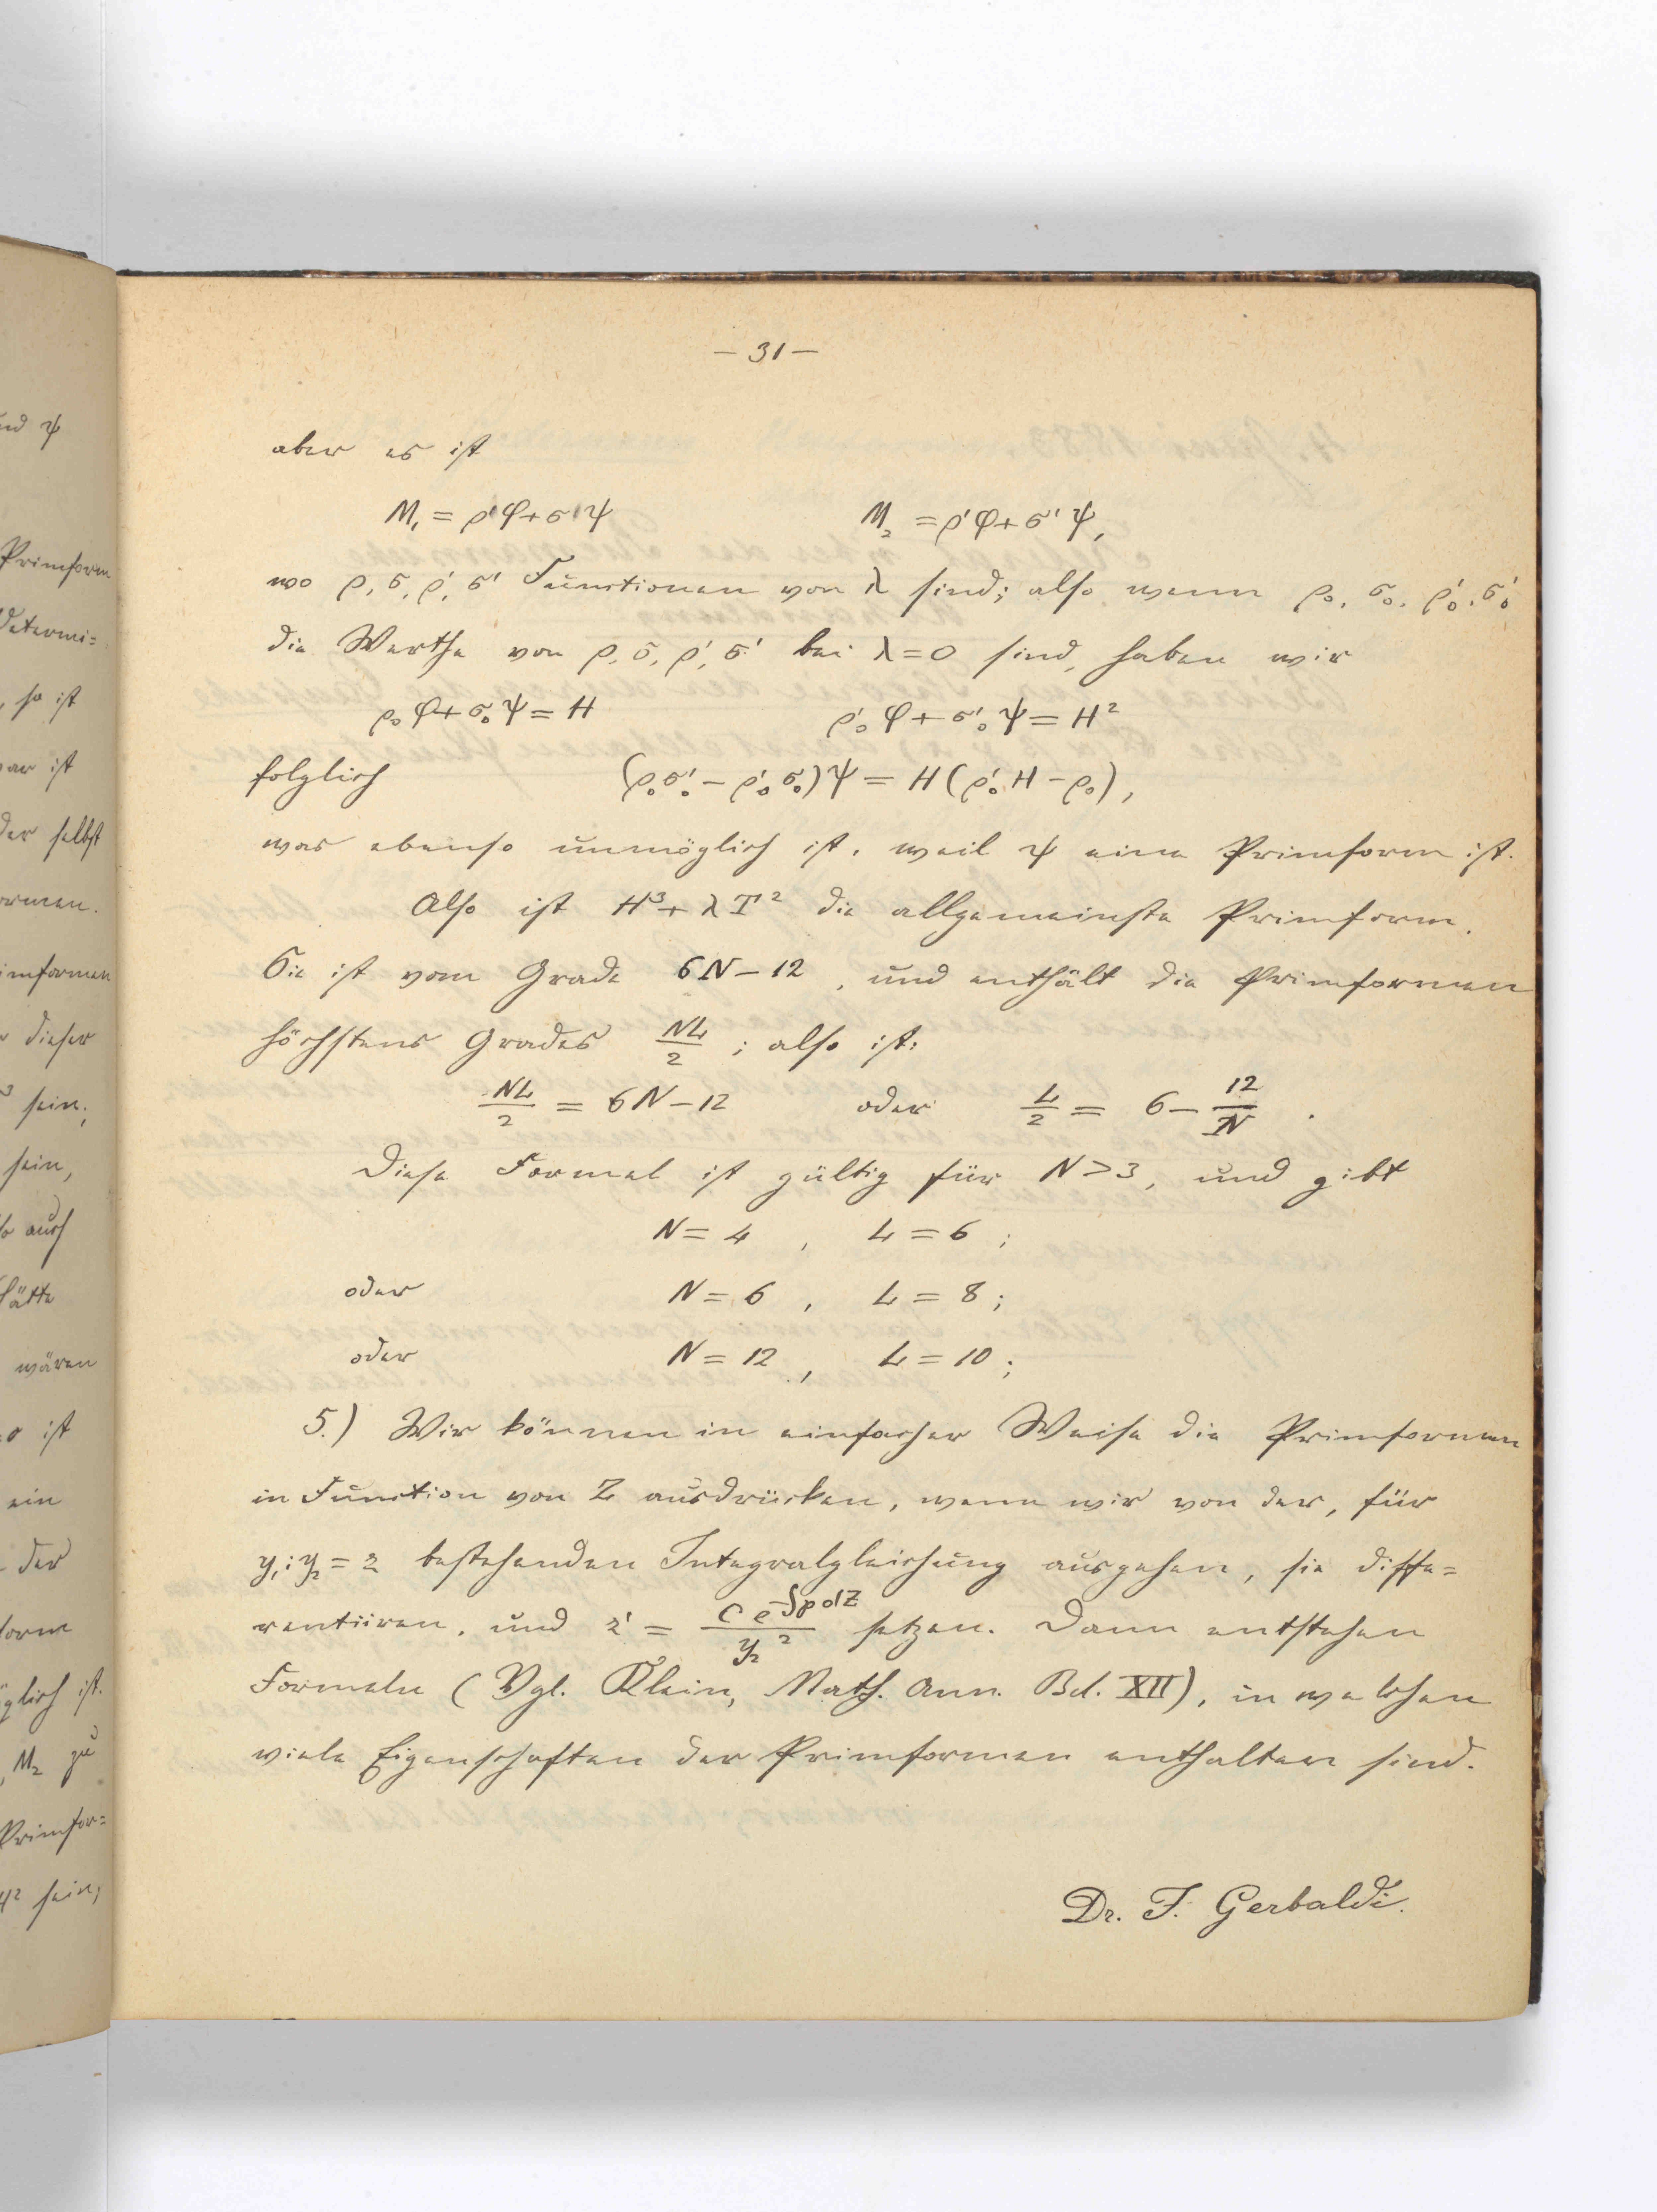 — 31 —
aber es ist
M₁ = ρ'φ+σ'ψ M₂ = ρ'φ+σ'ψ,
wo ρ, σ, ρ', σ' Functionen von λ sind; also wenn ρ₀, σ₀, ρ'₀, σ'₀
die Werthe von ρ, σ, ρ', σ' bei λ=0 sind, haben wir
ρ₀φ+σ₀ψ = H ρ'₀φ+σ'₀ψ = H²
folglich (ρ₀σ'₀ – ρ'₀σ₀)ψ = H(ρ'₀H – ρ₀),
was ebenso unmöglich ist, weil ψ eine Primform ist.
Also ist H³+λT² die allgemeinste Primform.
Sie ist vom Grade 6N–12, und enthält die Primformen
höchstens Grades NL/2; also ist:
NL/2 = 6N–12 oder L/2 = 6 – 12/N.
Diese Formel ist gültig für N>3, und gibt
N=4, L=6;
oder N=6, L=8;
oder N=12, L=10;
5.) Wir können in einfacher Weise die Primformen
in Function von Z ausdrücken, wenn wir von der, für
y₁:y₂=z bestehenden Integralgleichung ausgehen, sie diffe=
rentiiren, und z' = C e^(-∫p dZ)/y₂² setzen. Dann entstehen
Formeln (Vgl. Klein, Math. Ann. Bd. XII), in welchen
viele Eigenschaften der Primformen enthalten sind.
Dr. F. Gerbaldi.